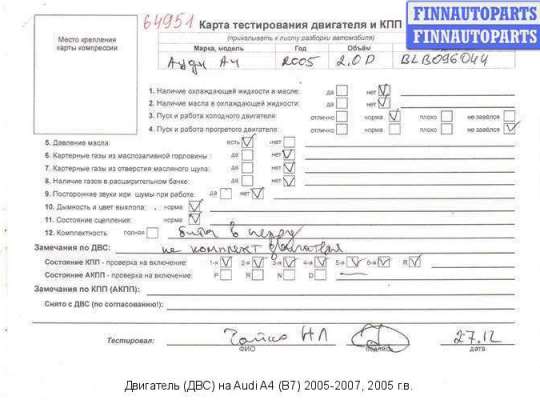 64951
Карта тестирования двигателя и КПП
FINNAUTOPARTS
FINNAUTOPARTS
Место крепления
карты компрессии
(прикалывать к листу разборки автомобиля)
Марка, модель Год Объём
Ауди А4 2005 2,0D BLB096044
1. Наличие охлаждающей жидкости в масле: да нет
2. Наличие масла в охлаждающей жидкости: да нет
3. Пуск и работа холодного двигателя: отлично норма плохо не завёлся
4. Пуск и работа прогретого двигателя: отлично норма плохо не завёлся
5. Давление масла: есть нет
6. Картерные газы из маслозаливной горловины : да нет
7. Картерные газы из отверстия масляного щупа: да нет
8. Наличие газов в расширительном бачке: да нет
9. Посторонние звуки или шумы при работе: да нет
10. Дымность и цвет выхлопа: норма
11. Состояние сцепления: норма
12. Комплектность: полная
Замечания по ДВС: не комплект двигателя
Состояние КПП - проверка на включение: 1-я 2-я 3-я 4-я 5-я 6-я R
Состояние АКПП - проверка на включение: P R N D
Замечания по КПП (АКПП):
Снято с ДВС (по согласованию!):
Тестировал: НЛ 27.12
ФИО подпись дата
Двигатель (ДВС) на Audi A4 (B7) 2005-2007, 2005 г.в.